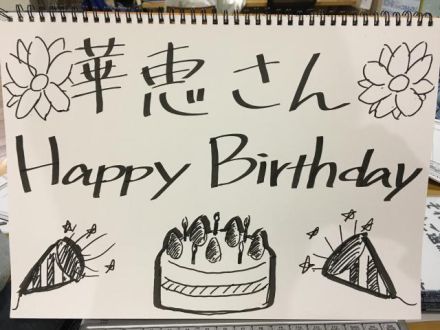 華恵さん
Happy Birthday